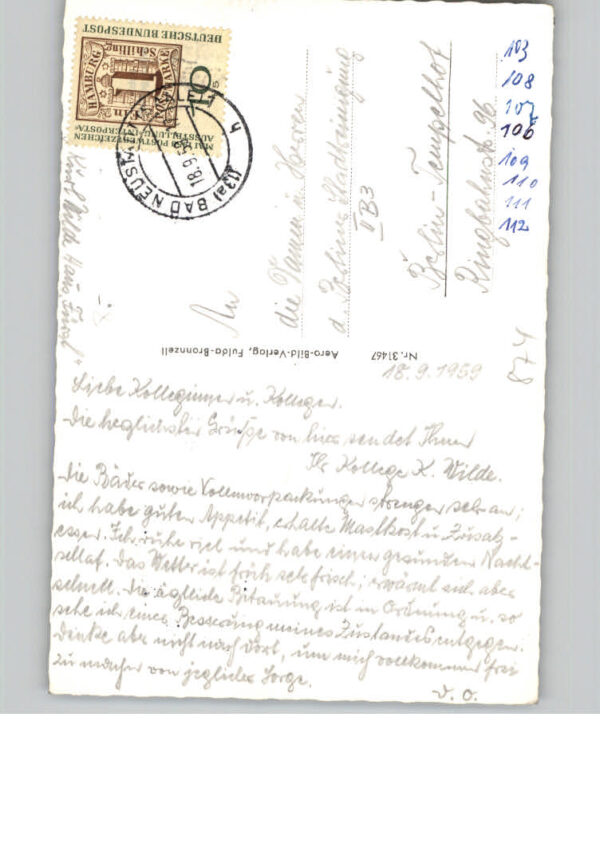 DEUTSCHE BUNDESPOST
HAMBURG
Schilling
POSTMARKE
10
AUSSTELLUNG INTERPOSTA
(13a) BAD NEUSTADT
18.9.59
h
An
die Damen u. Herren
d. Berliner Stadtreinigung
II B3
Berlin-Tempelhof
Ringbahnstr. 96
103
108
107
106
109
110
111
112
874
Aero-Bild-Verlag, Fulda-Bronnzell
Nr. 31467
18.9.1959
Liebe Kolleginnen u. Kollegen.
Die herzlichsten Grüße von hier sendet Ihnen
Ihr Kollege K. Wilde.
Die Bäder sowie Vollmoorpackungen strengen sehr an;
ich habe guten Appetit, erhalte Mastkost u. Zusatz-
essen. Ich ruhe viel und habe einen gesunden Nacht-
schlaf. Das Wetter ist früh sehr frisch, erwärmt sich aber
schnell. Die ärztliche Betreuung ist in Ordnung u. so
sehe ich einer Besserung meines Zustandes entgegen.
Denke aber nicht nach dort, um mich vollkommen frei
zu machen von jeglicher Sorge.
D. O.